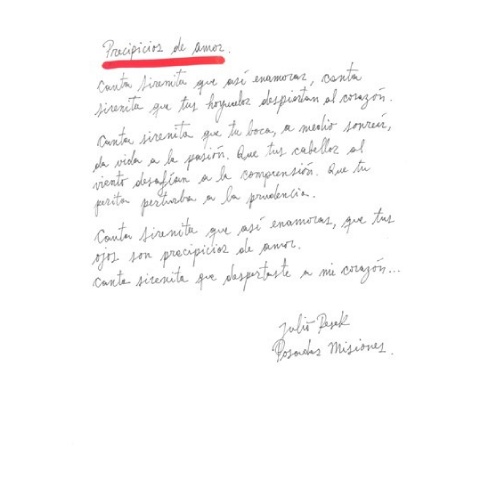 Precipicios de amor.
Canta sirenita que así enamoras, canta
sirenita que tus hoyuelos despiertan al corazón.
Canta sirenita que tu boca, a medio sonreír,
da vida a la pasión. Que tus cabellos al
viento desafían a la comprensión. Que tu
carita perturba a la prudencia.
Canta sirenita que así enamoras, que tus
ojos son precipicios de amor.
Canta sirenita que despertaste a mi corazón...
Julio Pesek
Posadas Misiones.